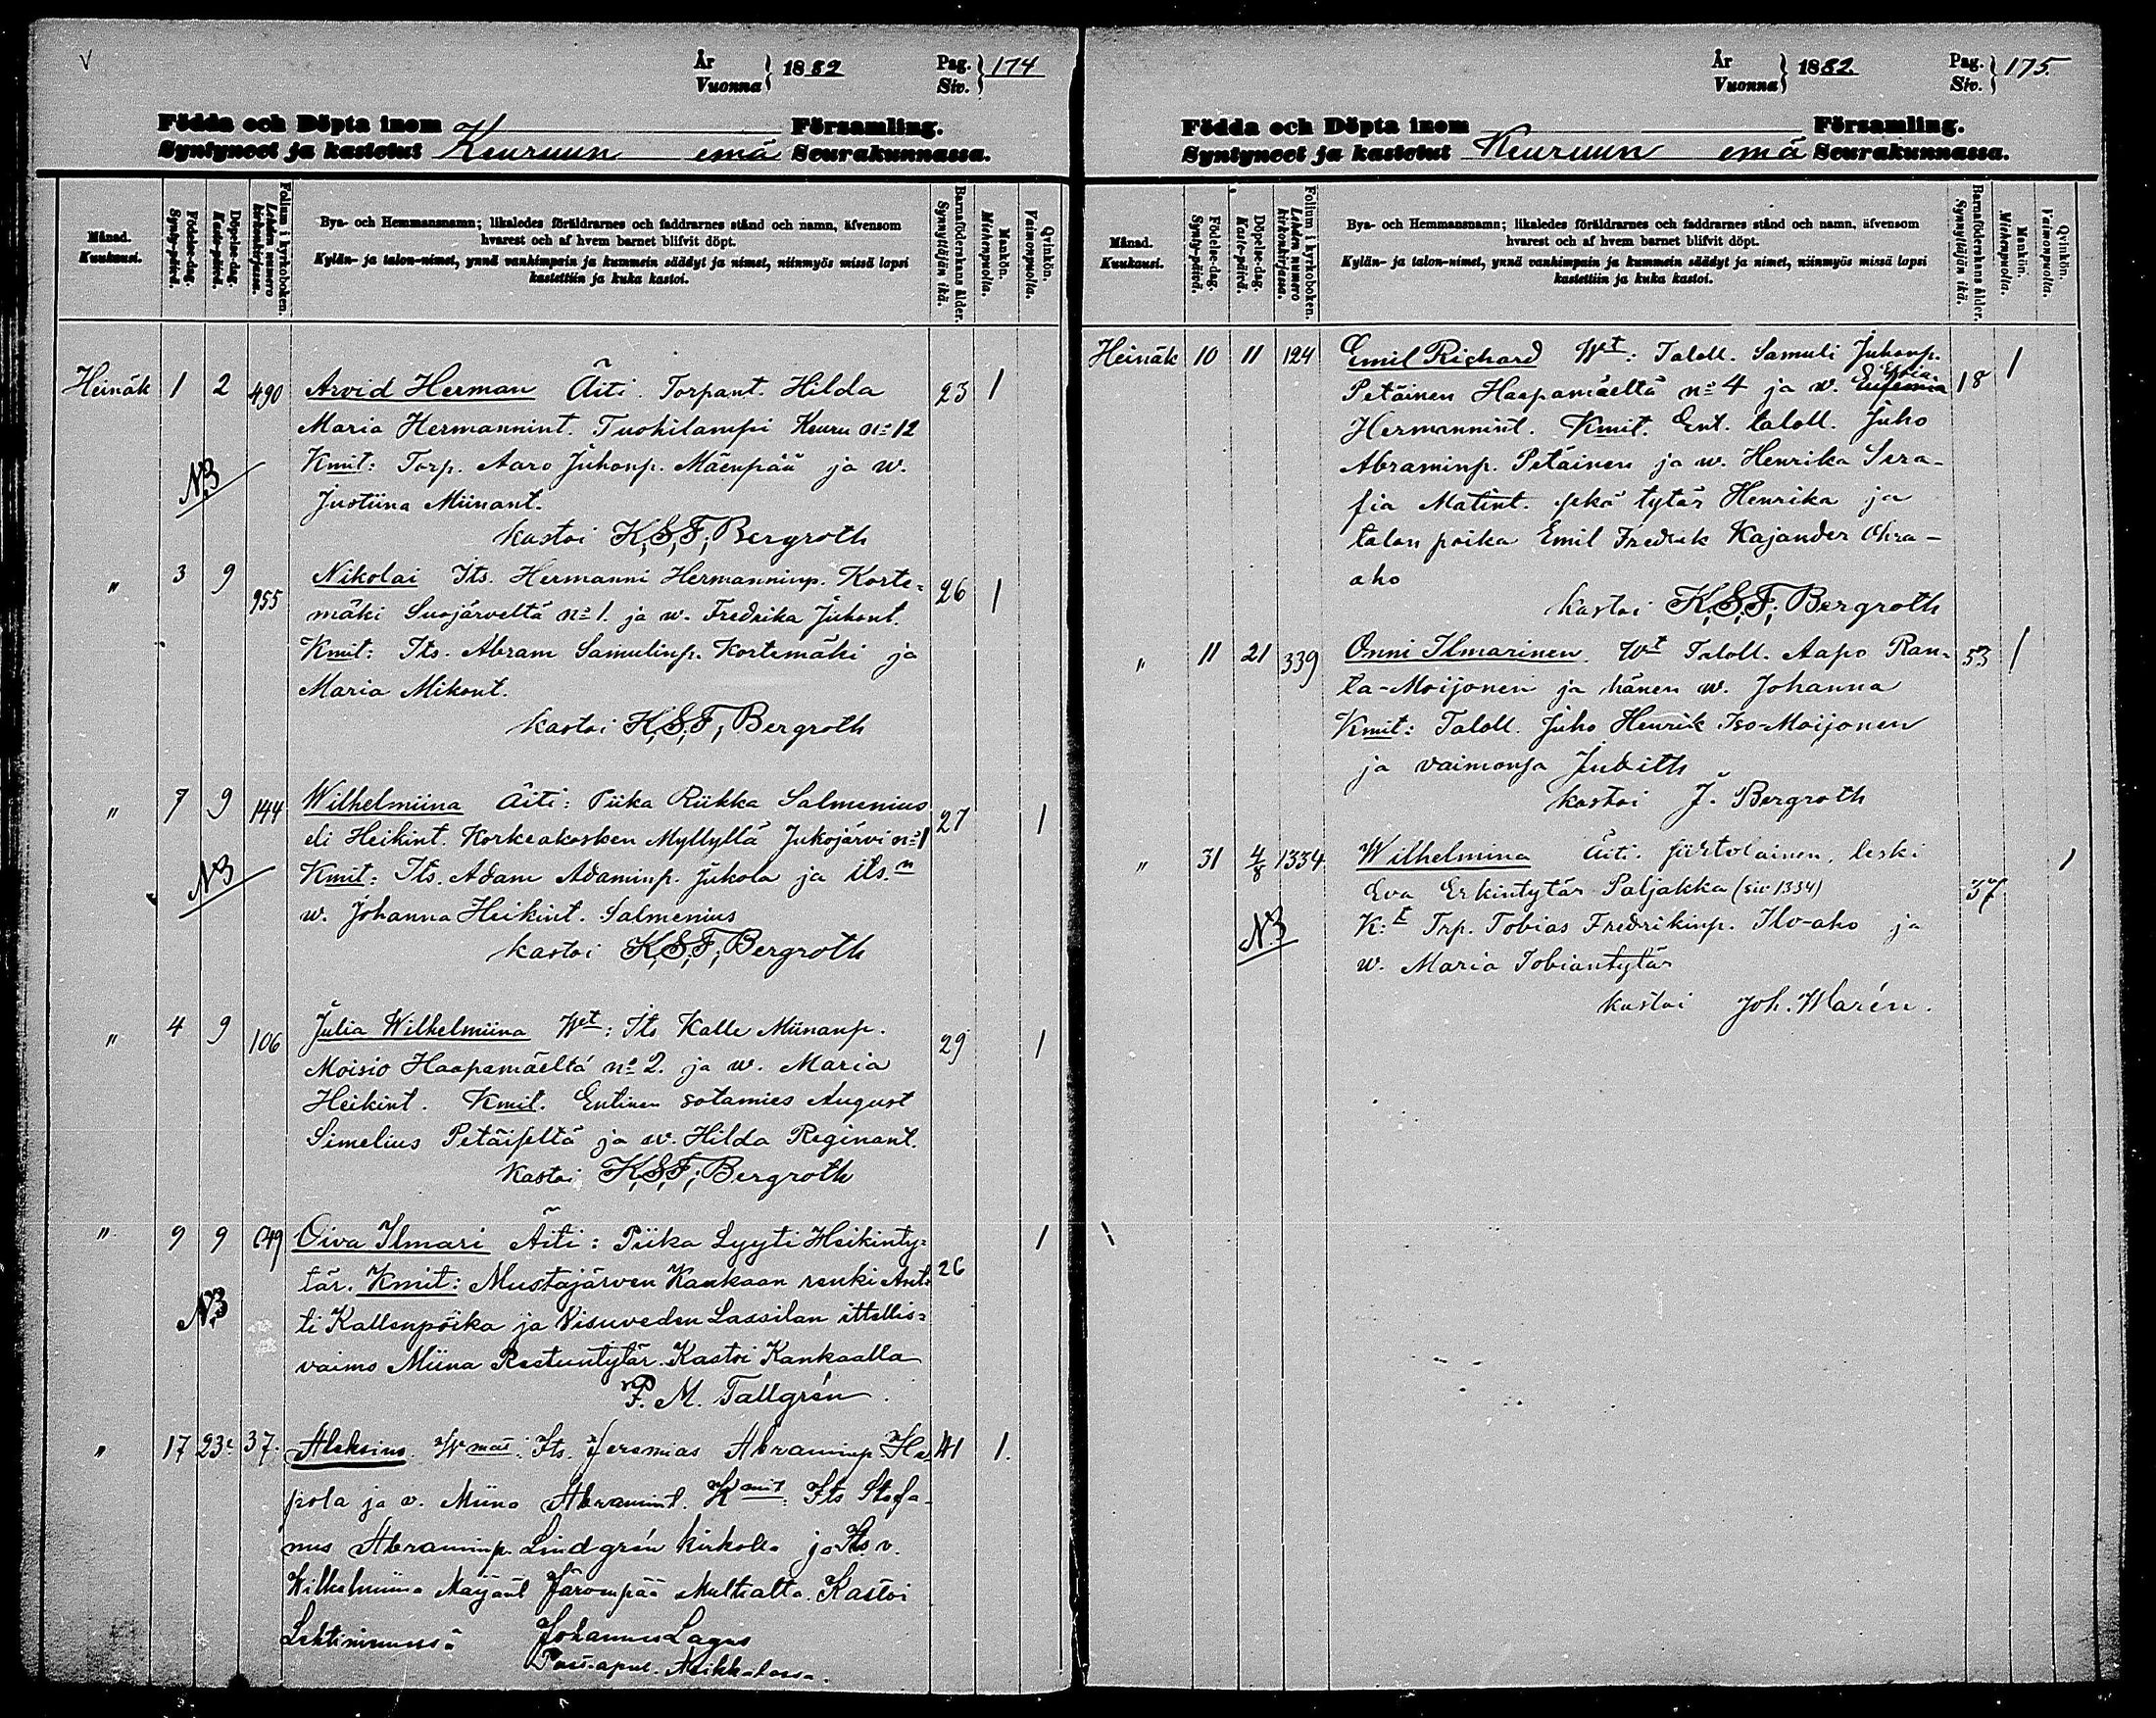 År
Vuonna } 1882
Pag.
Siv. } 174
Födda och Döpta inom Församling.
Syntyneet ja kastetut Keuruun emä Seurakunnassa.
Månad.
Kuukausi.
Födelse-dag.
Synty-päivä.
Döpelse-dag.
Kaste-päivä.
Folium i kyrkoboken.
Lehden numero kirkonkirjassa.
Bya- och Hemmansnamn; likaledes föräldrarnes och faddrarnes stånd och namn, äfvensom
hvarest och af hvem barnet blifvit döpt.
Kylän- ja talon-nimet, ynnä vanhimpain ja kummein säädyt ja nimet, niinmyös missä lapsi
kastettiin ja kuka kastoi.
Barnaföderskans ålder.
Synnyttäjän ikä.
Mankön.
Miehenpuolia.
Qvinkön.
Vaimonpuolia.
Heinäk 1 2 490 Arvid Herman Äiti. Torpant. Hilda 23 1
Maria Hermannint. Tuohilampi Keuru nº 12
Kmit: Torp. Aaro Juhonp. Mäenpää ja w.
NB
Justiina Miinant.
kastoi K.S.F. Bergroth
" 3 9 955 Nikolai Its. Hermanni Hermanninp. Korte- 26 1
mäki Suojärveltä nº 1. ja w. Fredrika Juhont.
Kmit: Its. Abram Samulinp. Kortemäki ja
Maria Mikont.
kastoi K.S.F. Bergroth
" 7 9 144 Wilhelmiina Äiti: Piika Riikka Salmenius 27 1
eli Heikint. Korkeakosken Myllyltä Jukojärvi nº 1
NB
Kmit: Its. Adam Adaminp. Jukola ja its.n
w. Johanna Heikint. Salmenius
kastoi K.S.F. Bergroth
" 4 9 106 Julia Wilhelmiina Wet: Its Kalle Miinanp. 29 1
Moisio Haapamäeltä nº 2. ja w. Maria
Heikint. Kmit. Entinen sotamies August
Simelius Petäiseltä ja w. Hilda Reginant.
Kastoi K.S.F. Bergroth
" 9 9 649 Oiva Ilmari Äiti: Piika Lyyti Heikinty- 1
tär. Kmit: Mustajärven Kankaan renki Ant- 26
NB
ti Kallenpoika ja Visuveden Lassilan ittellis-
vaimo Miina Restuntytär. Kastoi Kankaalla
F. M. Tallgrén
" 17 23 37. Aleksius. Wmat: Its. Jeremias Abraminp. Ha- 41 1.
pola ja v. Miina Abramint. Kmit: Its Stefa-
nus Abraminp. Lindgrén kirkolta ja Its. v.
Wilhelmiina Maijant Järvenpää Multialta. Kastoi
Johannes Lagus
Pass.apul.
År
Vuonna } 1882.
Pag.
Siv. } 175.
Födda och Döpta inom Församling.
Syntyneet ja kastetut Keuruun emä Seurakunnassa.
Månad.
Kuukausi.
Födelse-dag.
Synty-päivä.
Döpelse-dag.
Kaste-päivä.
Folium i kyrkoboken.
Lehden numero kirkonkirjassa.
Bya- och Hemmansnamn; likaledes föräldrarnes och faddrarnes stånd och namn, äfvensom
hvarest och af hvem barnet blifvit döpt.
Kylän- ja talon-nimet, ynnä vanhimpain ja kummein säädyt ja nimet, niinmyös missä lapsi
kastettiin ja kuka kastoi.
Barnaföderskans ålder.
Synnyttäjän ikä.
Mankön.
Miehenpuolia.
Qvinkön.
Vaimonpuolia.
Heinäk 10 11 124 Emil Richard Wet: Taloll. Samuli Juhonp. 1
Petäinen Haapamäeltä nº 4 ja w. Eufemia 18
Hermannint. Kmit. Ent. taloll. Juho
Abraminp. Petäinen ja w. Henrika Sera-
fia Matint. sekä tytär Henrika ja
talon poika Emil Fredrik Kajander Ohra-
aho
kastoi K.S.F. Bergroth
" 11 21 339 Onni Ilmarinen. Wet Taloll. Aapo Ran- 53 1
ta-Moijonen ja hänen w. Johanna
Kmit: Taloll. Juho Henrik Iso-Moijonen
ja vaimonsa Judith
kastoi J. Bergroth
" 31 4/8 1334 Wilhelmina Äiti. siirtolainen, leski 1
Eva Erkintytär Paljakka (siv 1334) 37
NB
K:t Trp. Tobias Fredrikinp. Ilo-aho ja
w. Maria Tobiantytär
kastoi Joh. Marén.